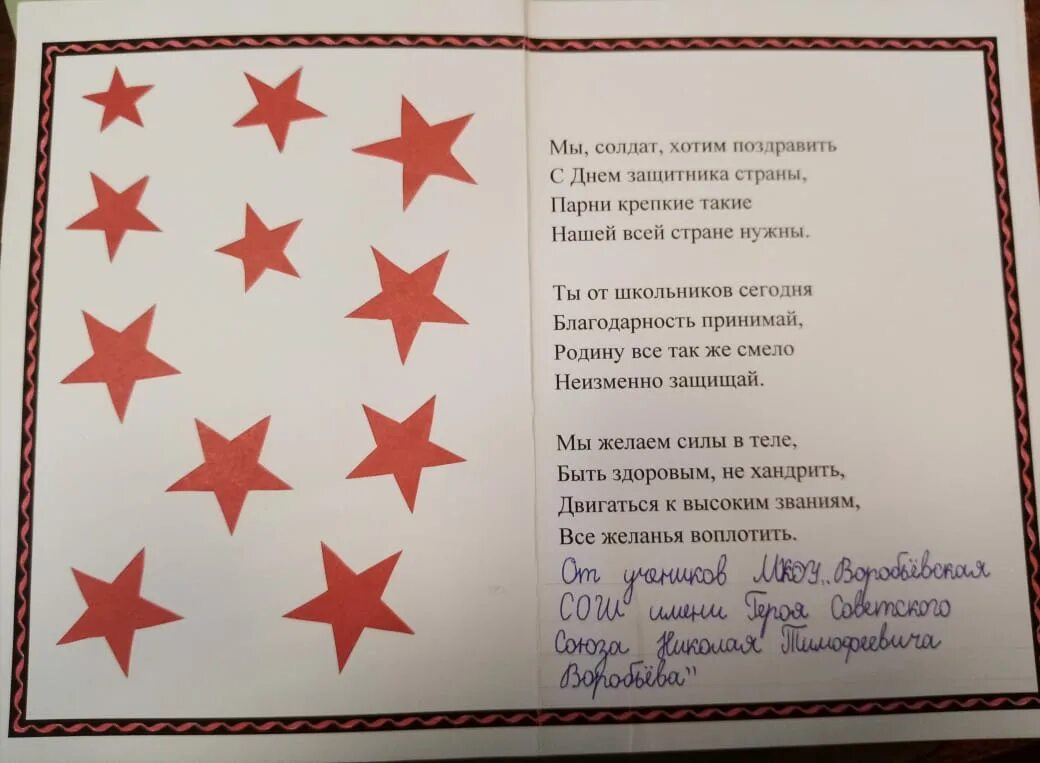 Мы, солдат, хотим поздравить
С Днем защитника страны,
Парни крепкие такие
Нашей всей стране нужны.
Ты от школьников сегодня
Благодарность принимай,
Родину все так же смело
Неизменно защищай.
Мы желаем силы в теле,
Быть здоровым, не хандрить,
Двигаться к высоким званиям,
Все желанья воплотить.
От учеников МКОУ „Воробьёвская
СОШ имени Героя Советского
Союза Николая Тимофеевича
Воробьёва"